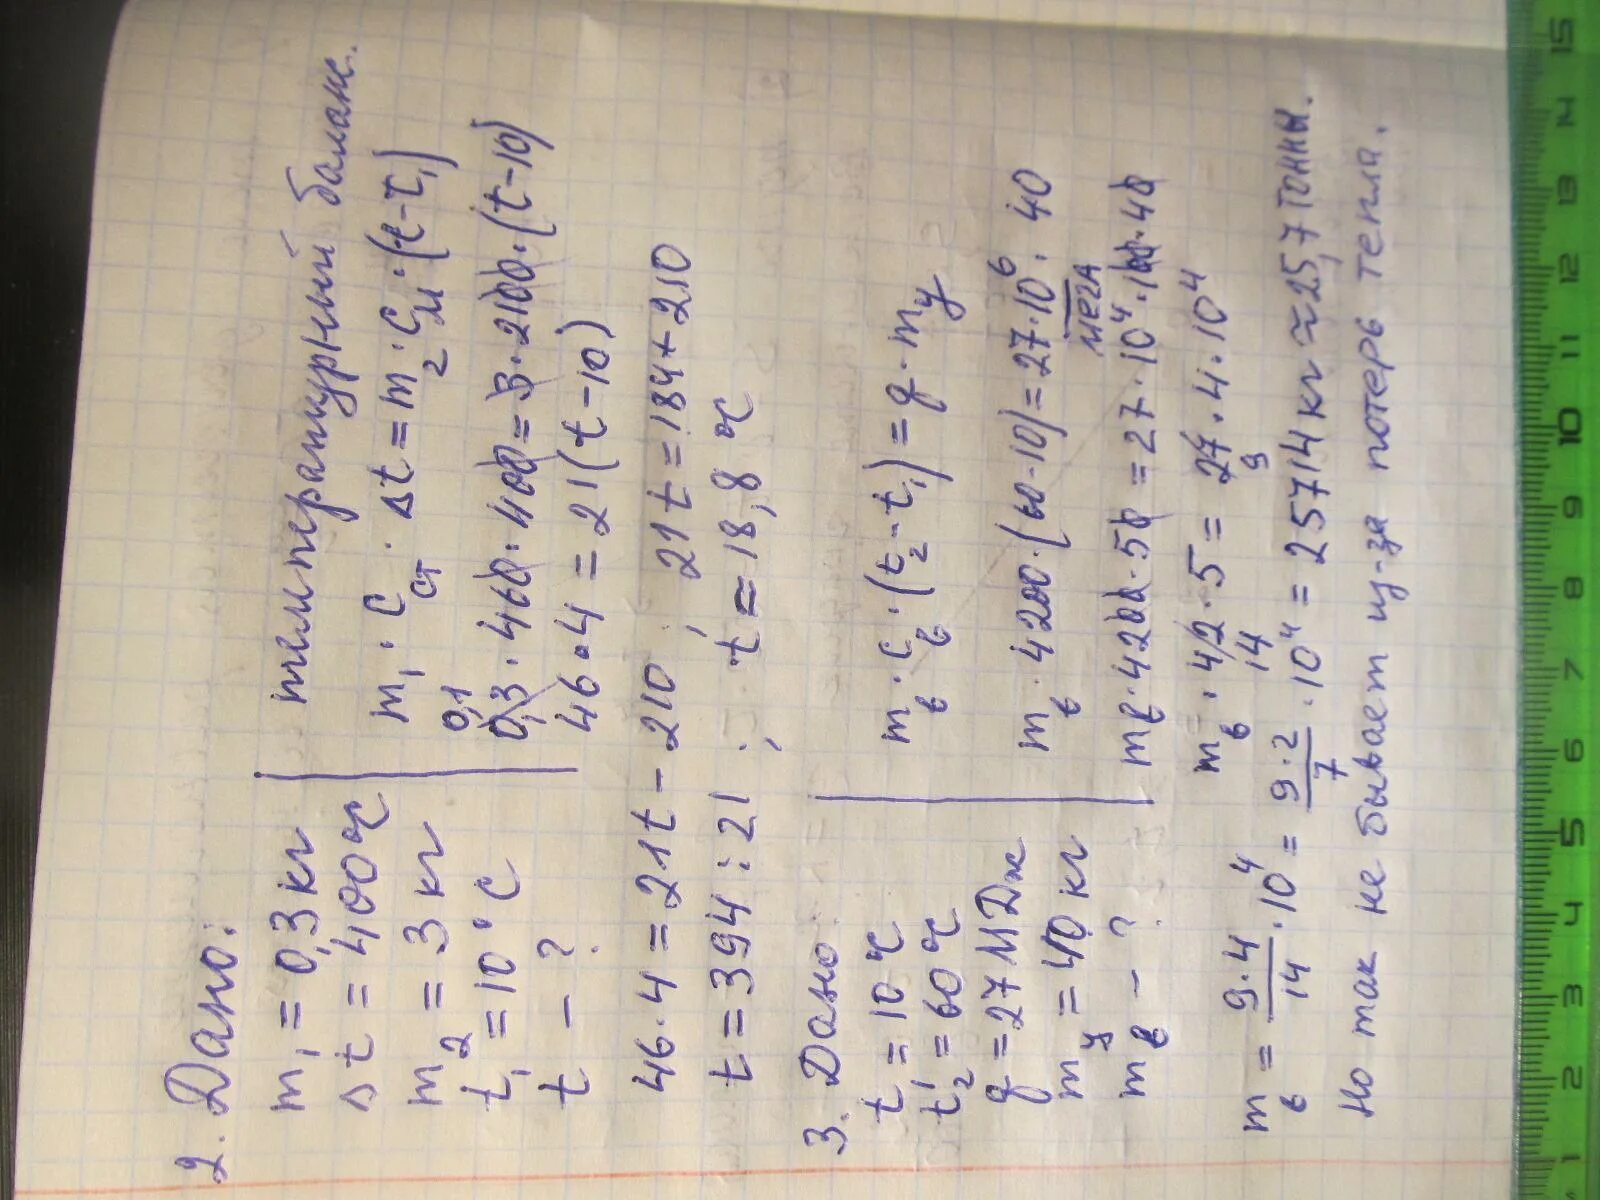 2. Дано:
m₁ = 0,3 кг
Δt = 400 °C
m₂ = 3 кг
t₁ = 10 °C
t - ?
температурный баланс.
m₁ · Cст · Δt = m₂ · Cм · (t - t₁)
0,1
0,3 · 460 · 400 = 3 · 2100 · (t - 10)
46 · 4 = 21 (t - 10)
46 · 4 = 21t - 210 ; 21t = 184 + 210
t = 394 : 21 ; t ≈ 18,8 °C
3. Дано
t₁ = 10 °C
t₂ = 60 °C
q = 27 МДж
mу = 40 кг
mв - ?
mв · Cв · (t₂ - t₁) = q · mу
mв · 4200 · (60 - 10) = 27 · 10⁶ · 40
мега
mв · 4200 · 50 = 27 · 10⁴ · 100 · 40
mв · 42 · 5 = 27 · 4 · 10⁴
14 9
mв = 9·4/14 · 10⁴ = 9·2/7 · 10⁴ = 25714 кг ≈ 25,7 тонны.
Но так не бывает из-за потерь тепла.